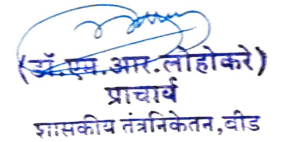 (डॉ.एस.आर.लोहोकरे)
प्राचार्य
शासकीय तंत्रनिकेतन,बीड